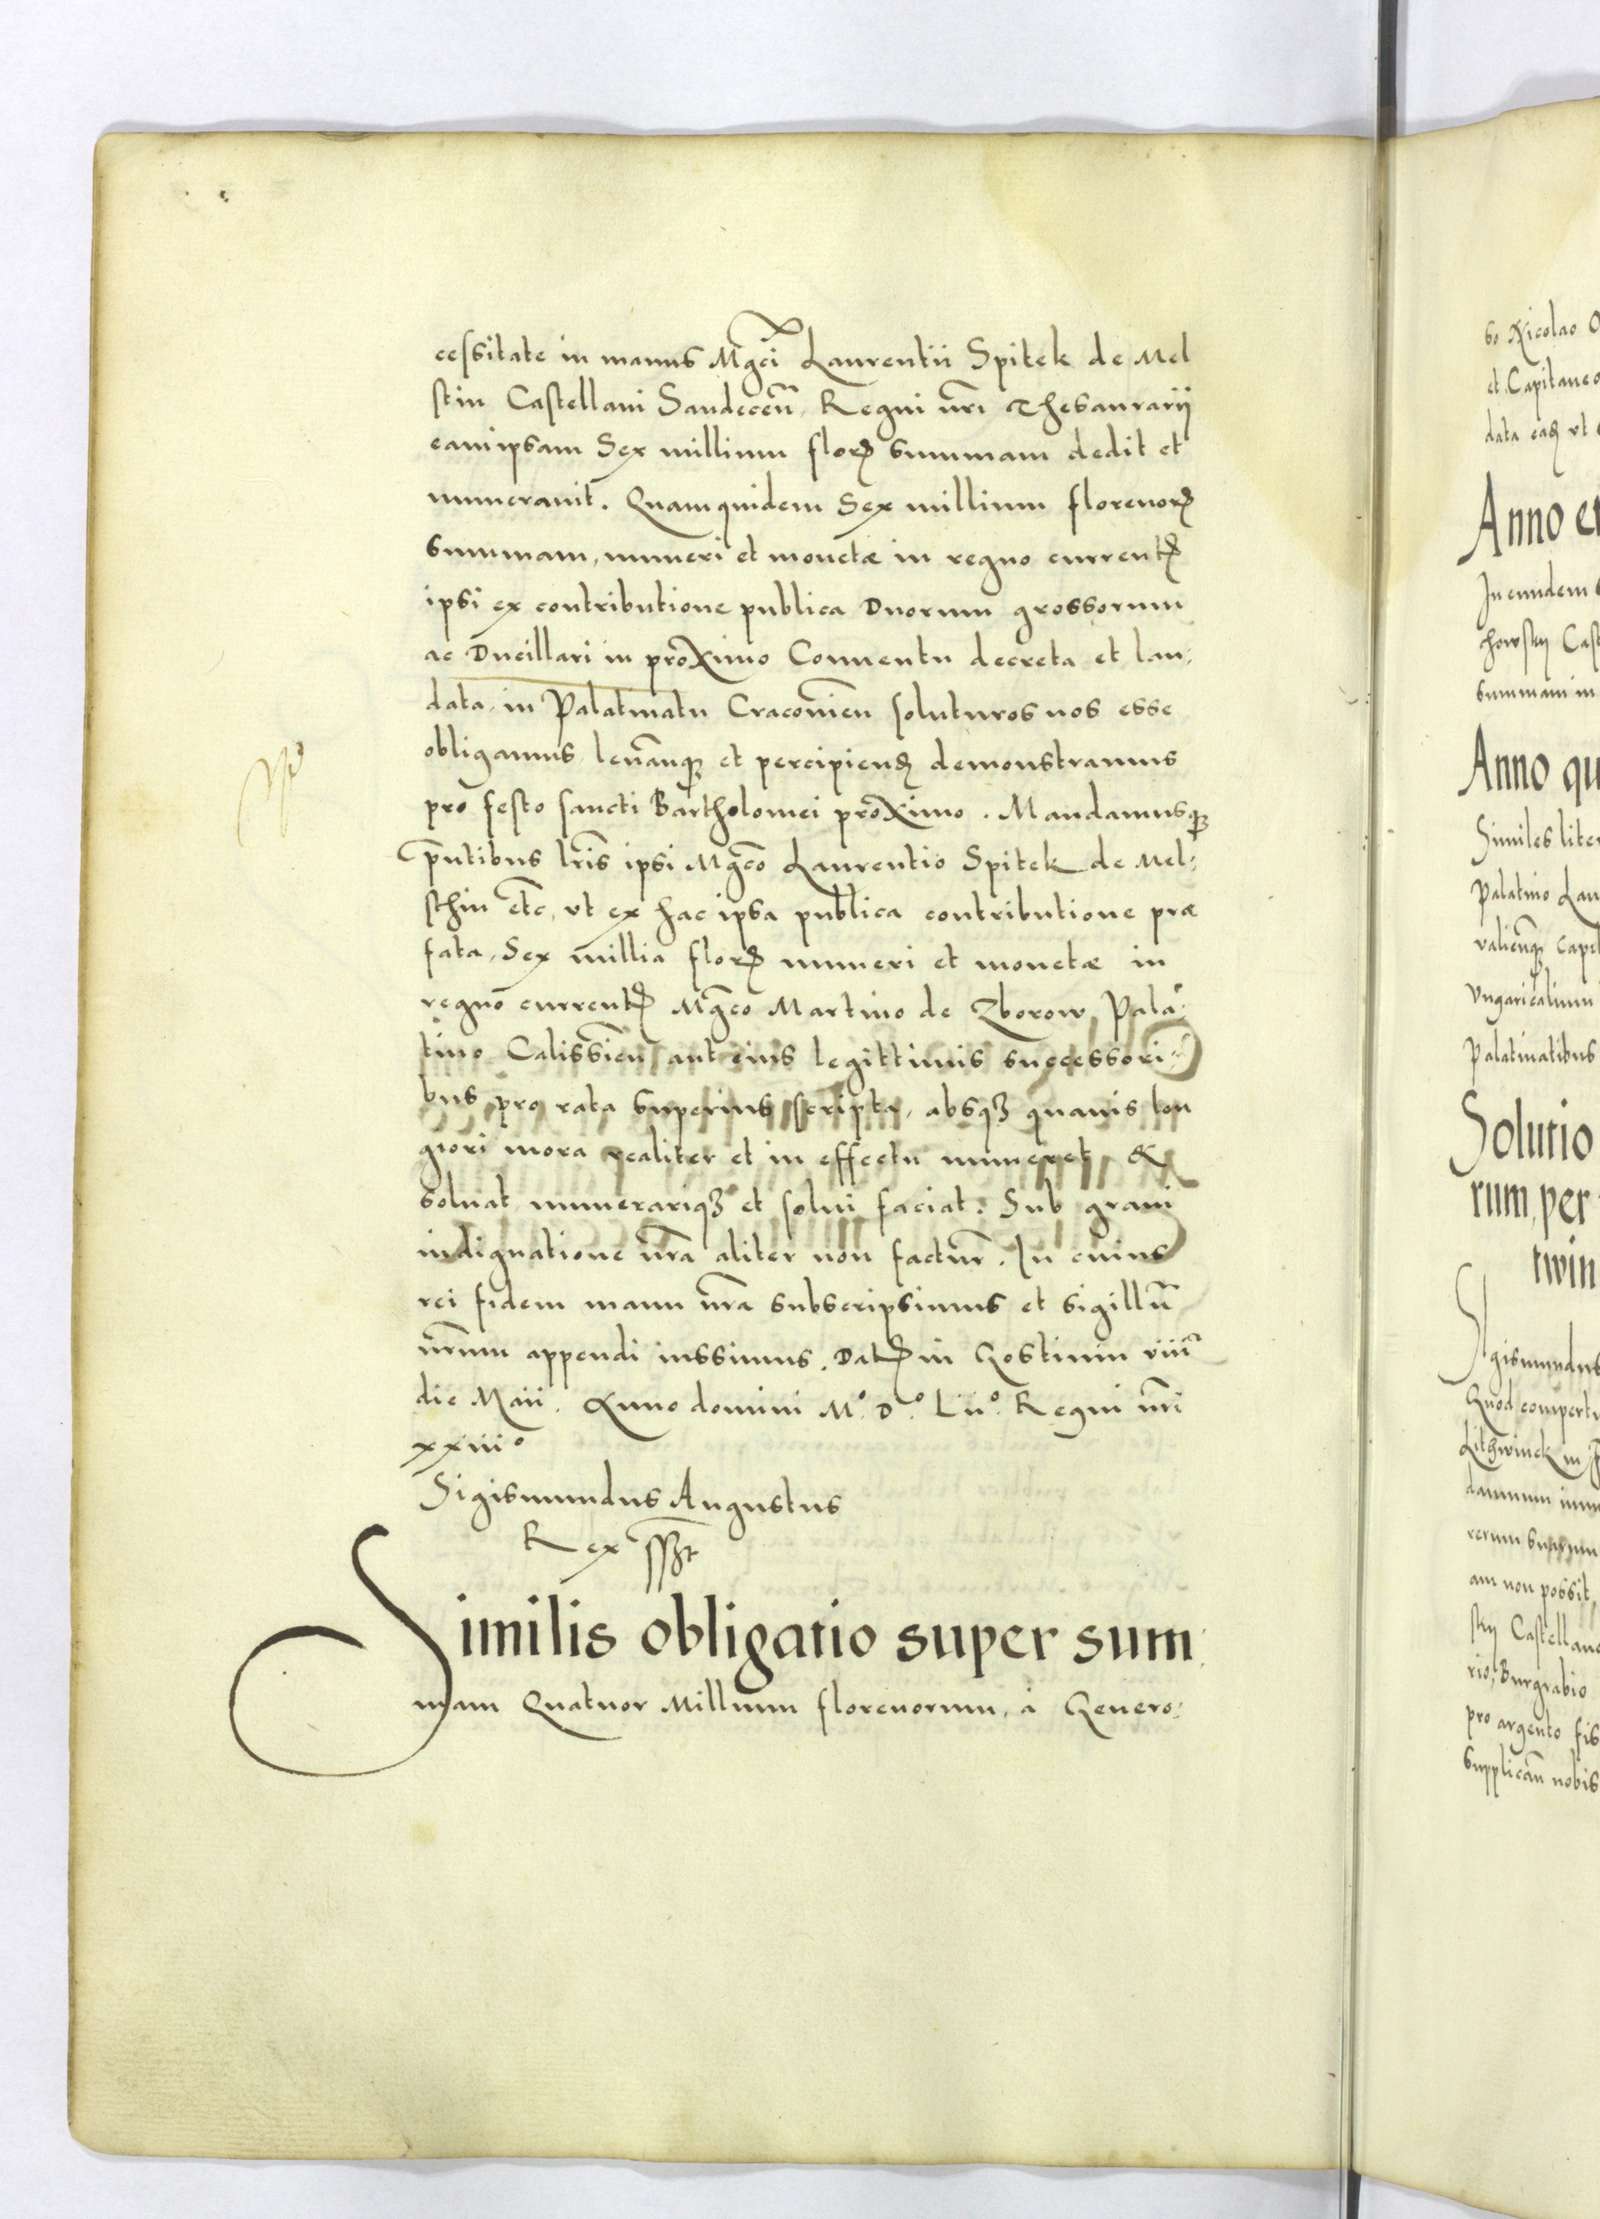 cessitate in manus Mgci Laurentii Spitek de Mel
stin Castellani Sandecen̄, Regni nr̄i Thesaurarij
eamipsam Sex millium flor̄ summam dedit et
numerauit. Quamquidem Sex millium florenor̄
summam, numeri et monetæ in regno current̄
ipsi ex contributione publica Duorum grossorum
ac Ducillari in proximo Conuentu decreta et lau:
data, in Palatinatu Cracouien̄ soluturos nos esse
obligamus, leuan̄qꝫ et percipien̄ demonstramus
pro festo sancti Bartholomei proximo. Mandamusqꝫ
pn̄tibus lr̄is ipsi Mgco Laurentio Spitek de Mel:
sthin etc, vt ex hac ipsa publica contributione præ
fata, Sex millia flor̄ numeri et monetæ in
regno current̄ Mgco Martino de Zborow Pala:
tino Calissien̄ aut eius legittimis successori:
bus pro rata superius scripta, absqꝫ quauis lon
giori mora realiter et in effectu numeret &
soluat, numerariqꝫ et solui faciat: Sub graui
indignatione nr̄a aliter non factur̄. In cuius
rei fidem manu nr̄a subscripsimus et sigillū
nr̄um appendi iussimus. Dat̄ in Gostinin viii
die Maii. Anno domini Mº. Dº. Liiº. Regni nr̄i
xxiiiº
Sigismundus Augustus
Rex sszt
Similis obligatio super sum:
mam Quatuor Millium florenorum, à Genero:
so Nicolao
et Capitaneo
data vt
Anno
In eundem
summam in
Anno qu
Similes liter
Palatino Lan
Vngaricalium
Palatinatibus
Solutio
rum, per
twin
Sigismundus
Quod comperta
Lithwinck in
damnum
rerum suarum
am non possit,
skij Castellano
rio, Burgrabio
pro argento fis
supplican̄ nobis